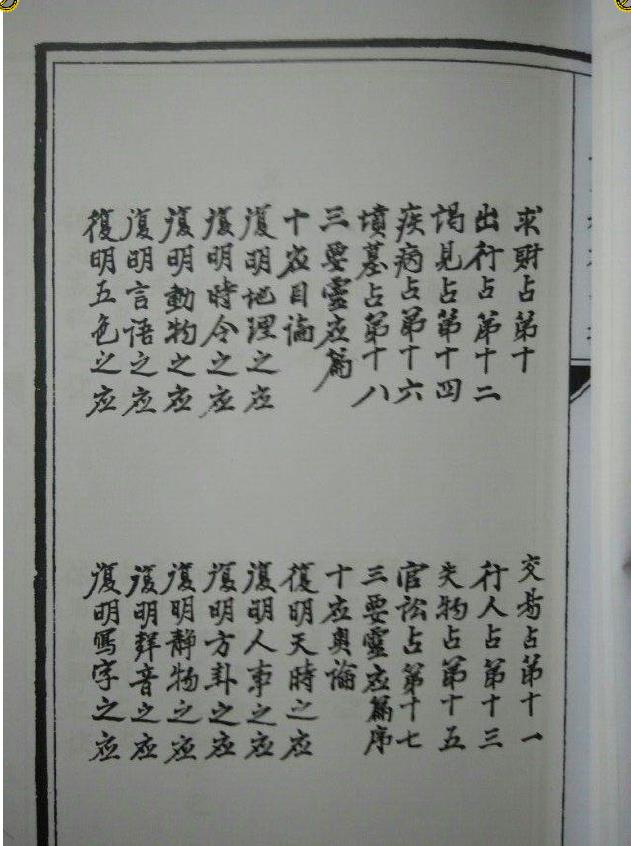 求財占第十
交易占第十一
出行占第十二
行人占第十三
謁見占第十四
失物占第十五
疾病占第十六
官訟占第十七
墳墓占第十八
三要靈应篇序
三要靈应篇
十应奥論
十应目論
復明天時之应
復明地理之应
復明人事之应
復明時令之应
復明方卦之应
復明動物之应
復明静物之应
復明言語之应
復明聲音之应
復明五色之应
復明寫字之应